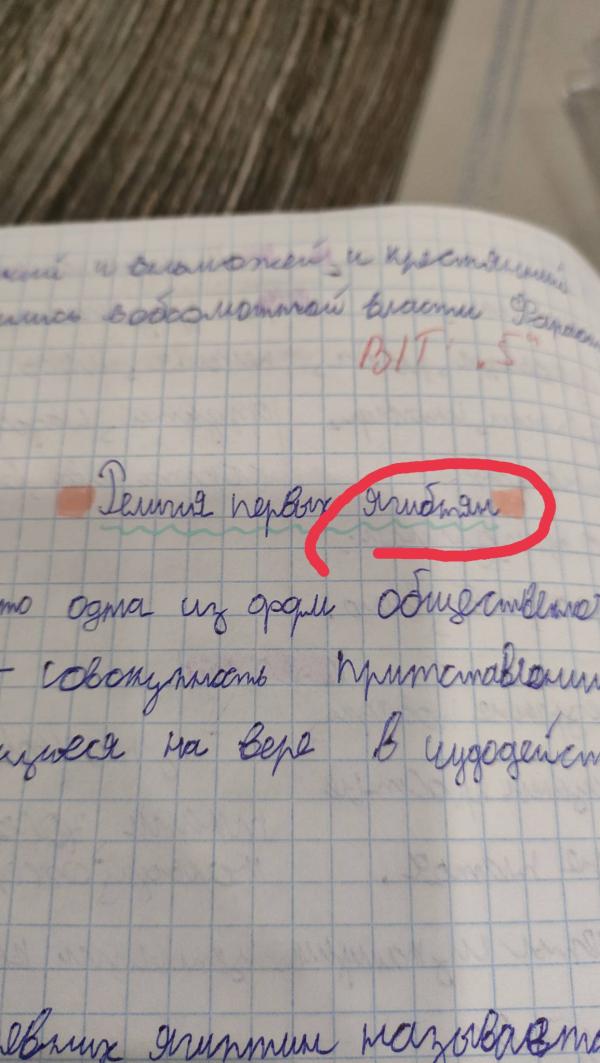 и вельможей, и крестьяний
вобсомотной власти Фараон
В/Т: .5"
Религия первых ягибтян
то одна из форм общественно
- совокупность притставлении
щиеся на вере в чудодейст
евних ягиптин называется